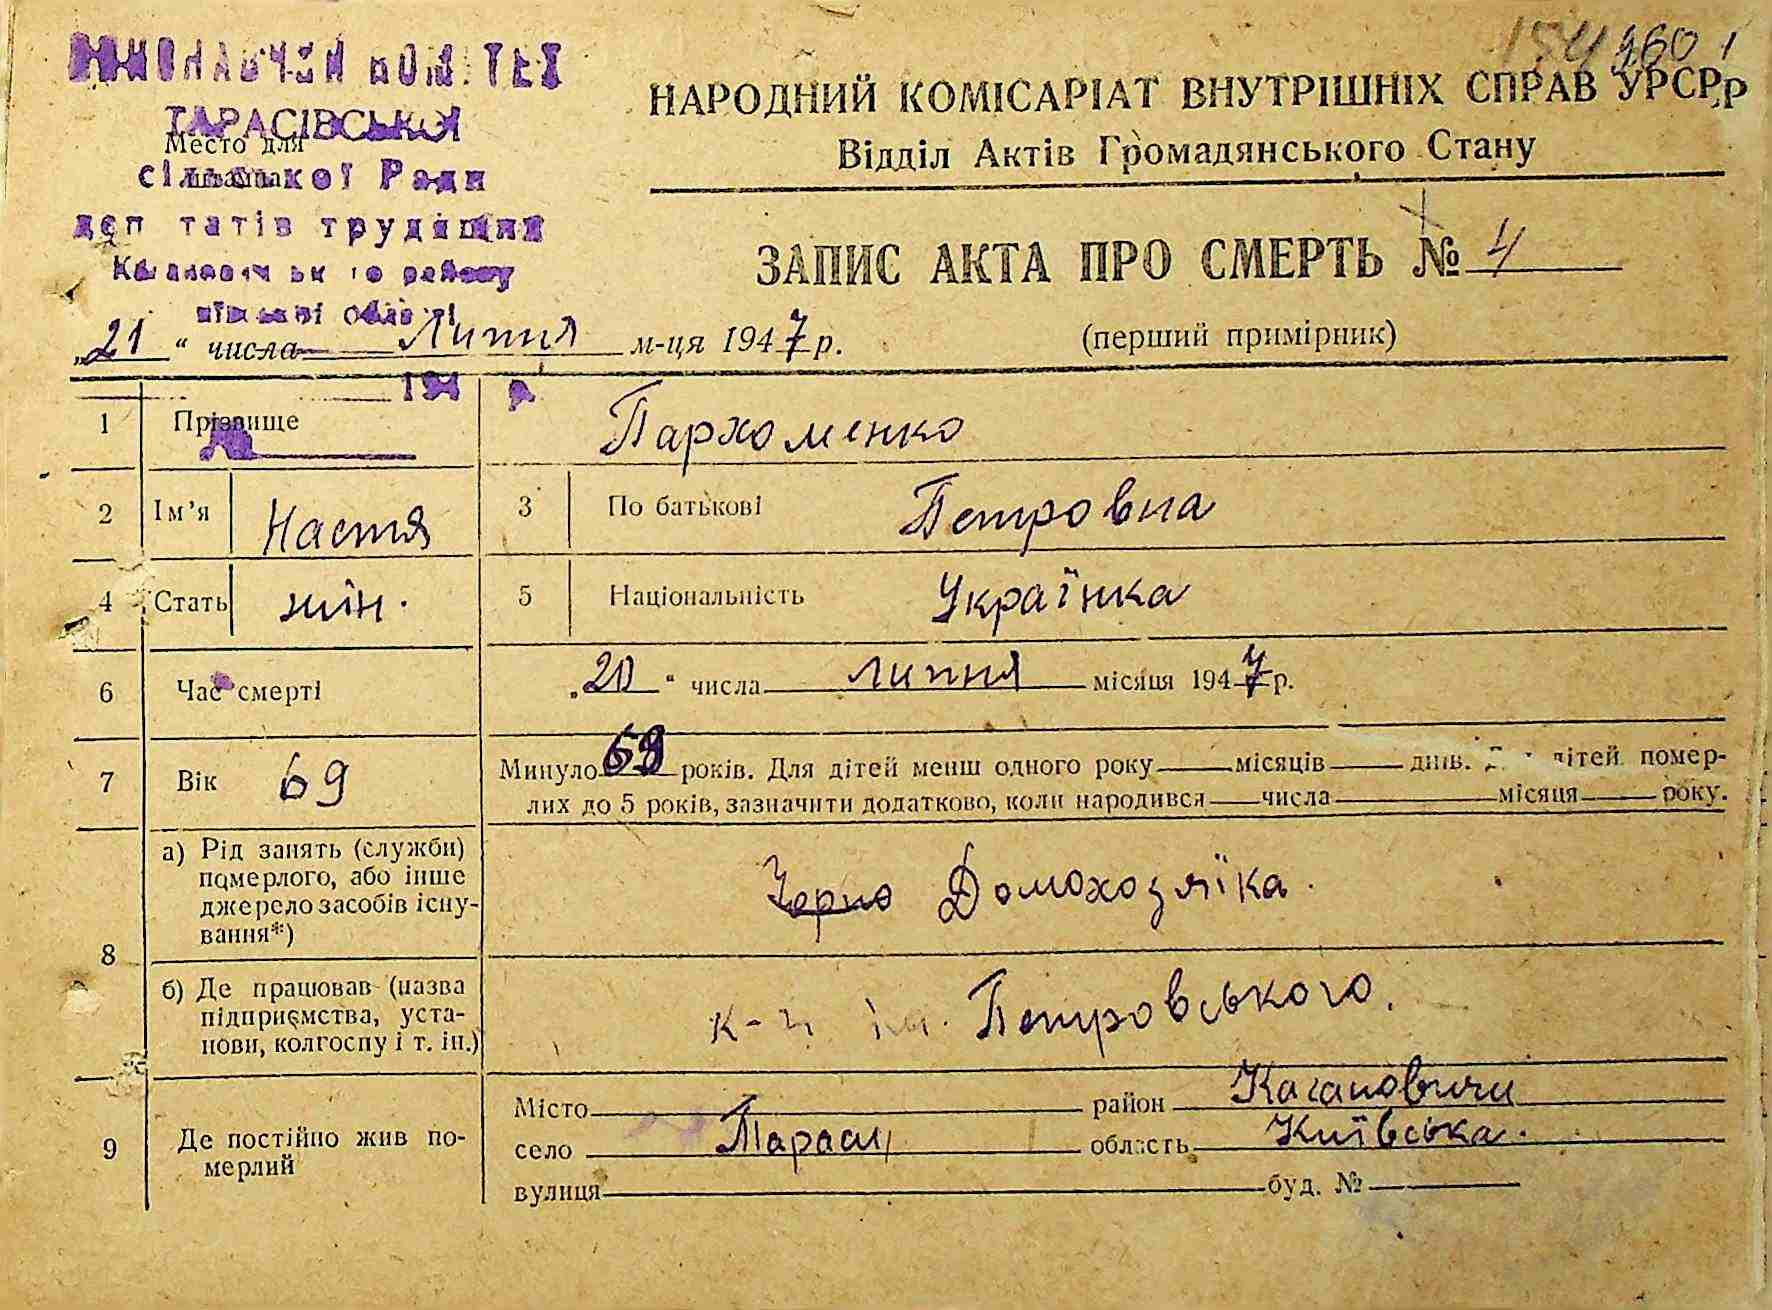 154 160 1
ВИКОНАВЧИЙ КОМІТЕТ
ТАРАСІВСЬКОЇ
Место для
сільської Ради
деп татів трудящих
району
області
194 р.
НАРОДНИЙ КОМІСАРІАТ ВНУТРІШНІХ СПРАВ УРСР
Відділ Актів Громадянського Стану
ЗАПИС АКТА ПРО СМЕРТЬ № 4
„21“ числа Липня м-ця 1947 р. (перший примірник)
1 Прізвище Пархоменко
2 Ім'я Настя 3 По батькові Петровна
4 Стать жін. 5 Національність Українка
6 Час смерті „20“ числа липня місяця 1947 р.
7 Вік 69 Минуло 69 років. Для дітей менш одного року місяців днів. дітей помер-
лих до 5 років, зазначити додатково, коли народився числа місяця року.
8 а) Рід занять (служби)
померлого, або інше
джерело засобів існу-
вання*)
Домохозяїка.
б) Де працював (назва
підприємства, уста-
нови, колгоспу і т. ін.)
к-п ім. Петровського.
9 Де постійно жив по-
мерлий
Місто район Кагановичи
село Тараси область Київська.
вулиця буд. №